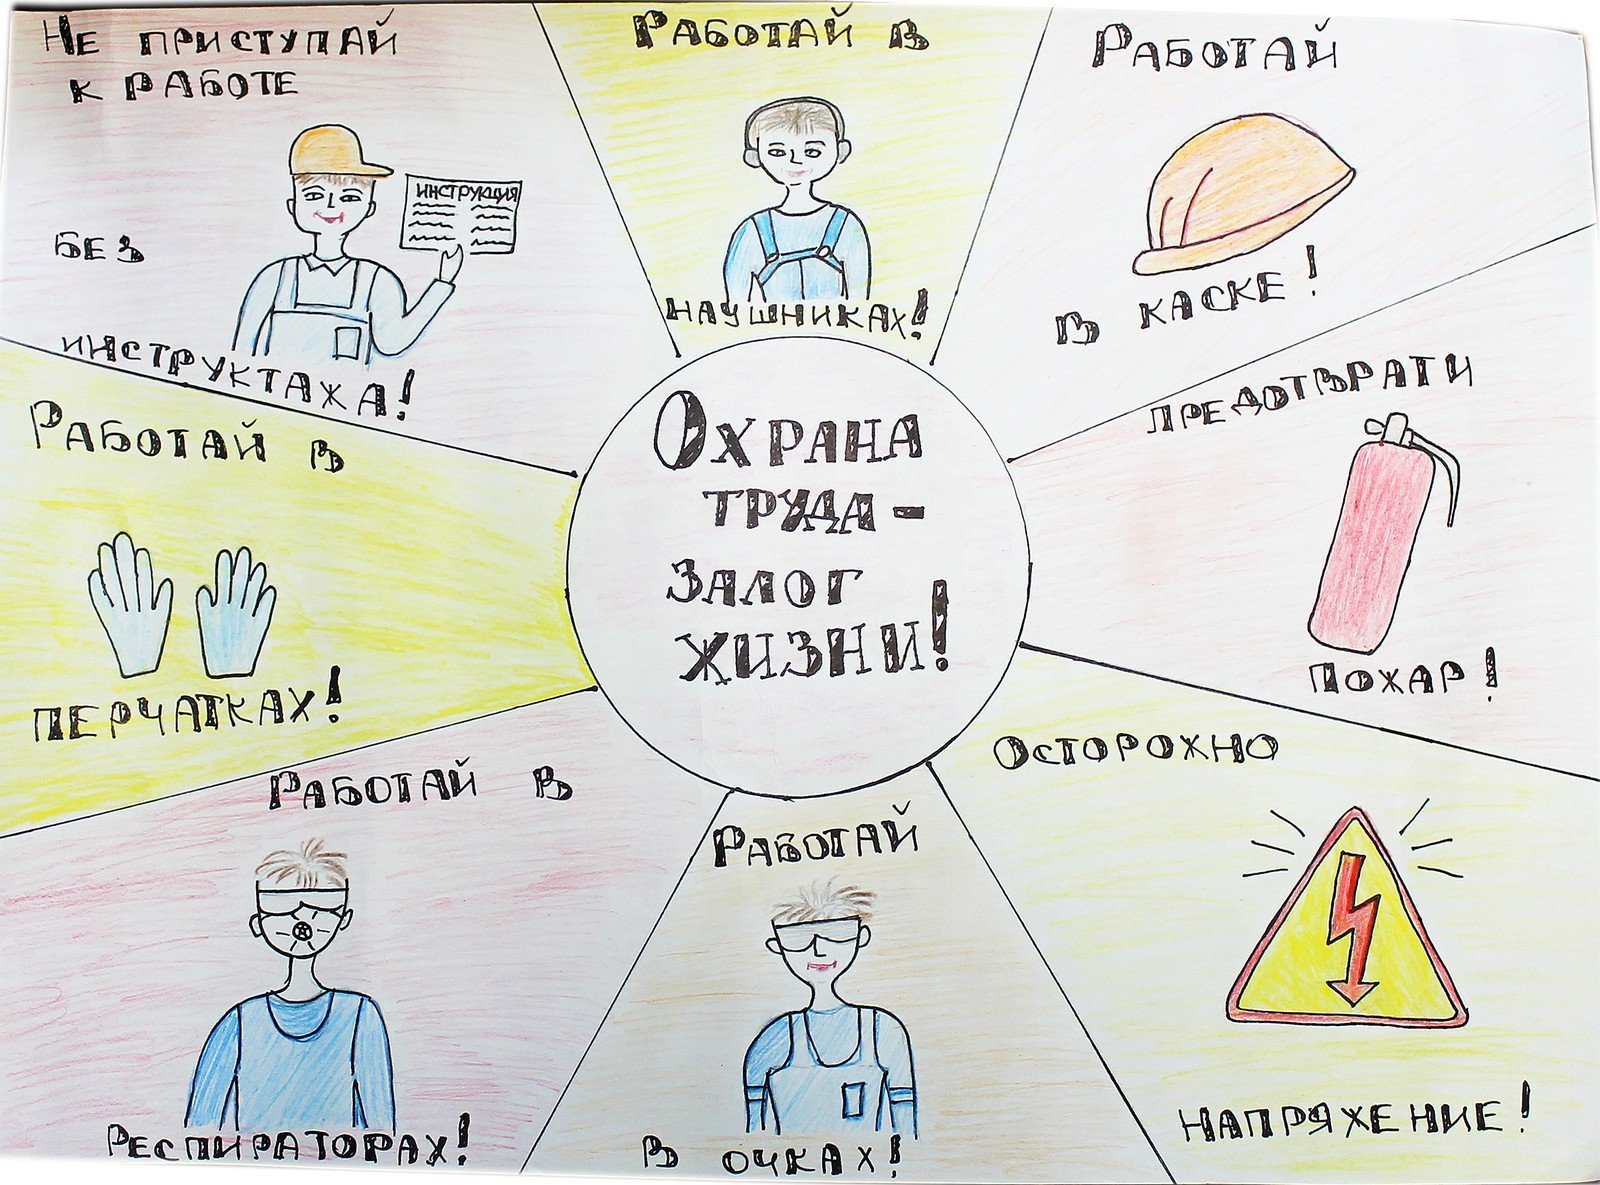 Не приступай
к работе
без
инструктажа!
инструкция
Работай в
наушниках!
Работай
в каске!
предотврати
пожар!
Осторожно
напряжение!
Работай
в очках!
Работай в
респираторах!
Работай в
перчатках!
Охрана
труда -
залог
жизни!